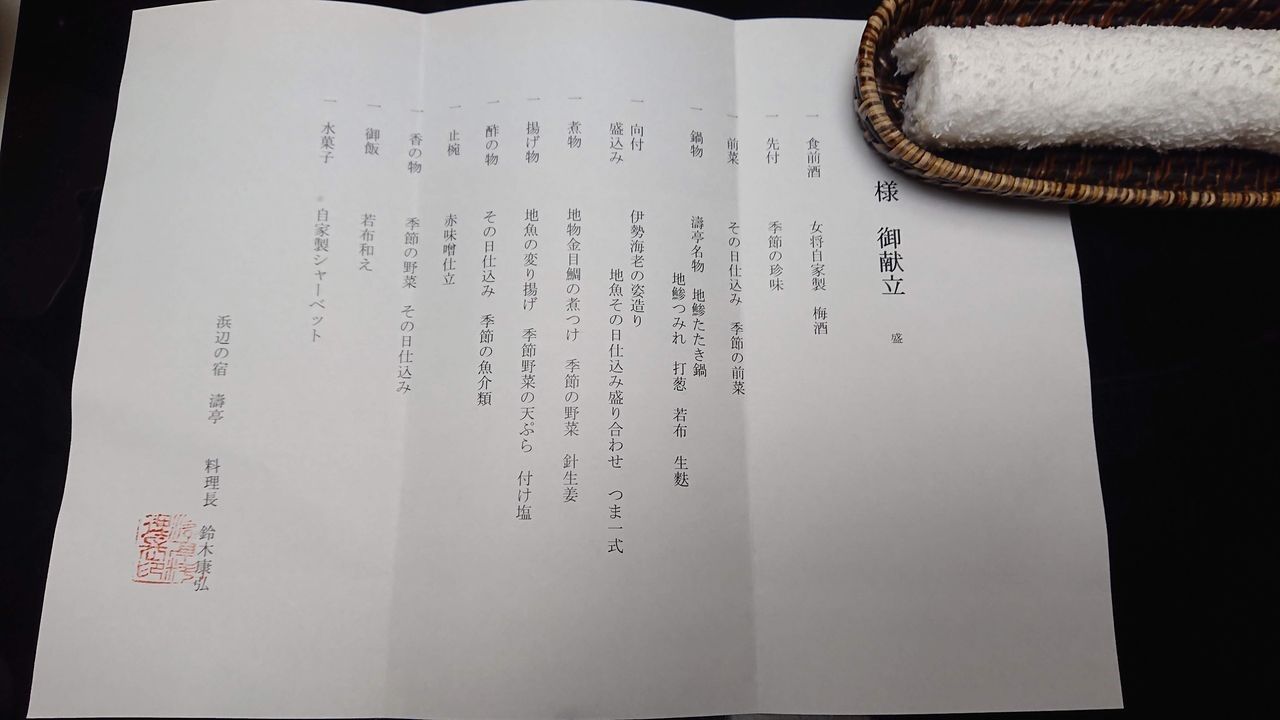 様 御献立 盛
一 食前酒 女将自家製 梅酒
一 先付 季節の珍味
一 前菜 その日仕込み 季節の前菜
一 鍋物 濤亭名物 地鯵たたき鍋
地鯵つみれ 打葱 若布 生麩
一 向付 伊勢海老の姿造り
盛込み 地魚その日仕込み盛り合わせ つま一式
一 煮物 地物金目鯛の煮つけ 季節の野菜 針生姜
一 揚げ物 地魚の変り揚げ 季節野菜の天ぷら 付け塩
一 酢の物 その日仕込み 季節の魚介類
一 止椀 赤味噌仕立
一 香の物 季節の野菜 その日仕込み
一 御飯 若布和え
一 水菓子 自家製シャーベット
浜辺の宿 濤亭 料理長 鈴木康弘